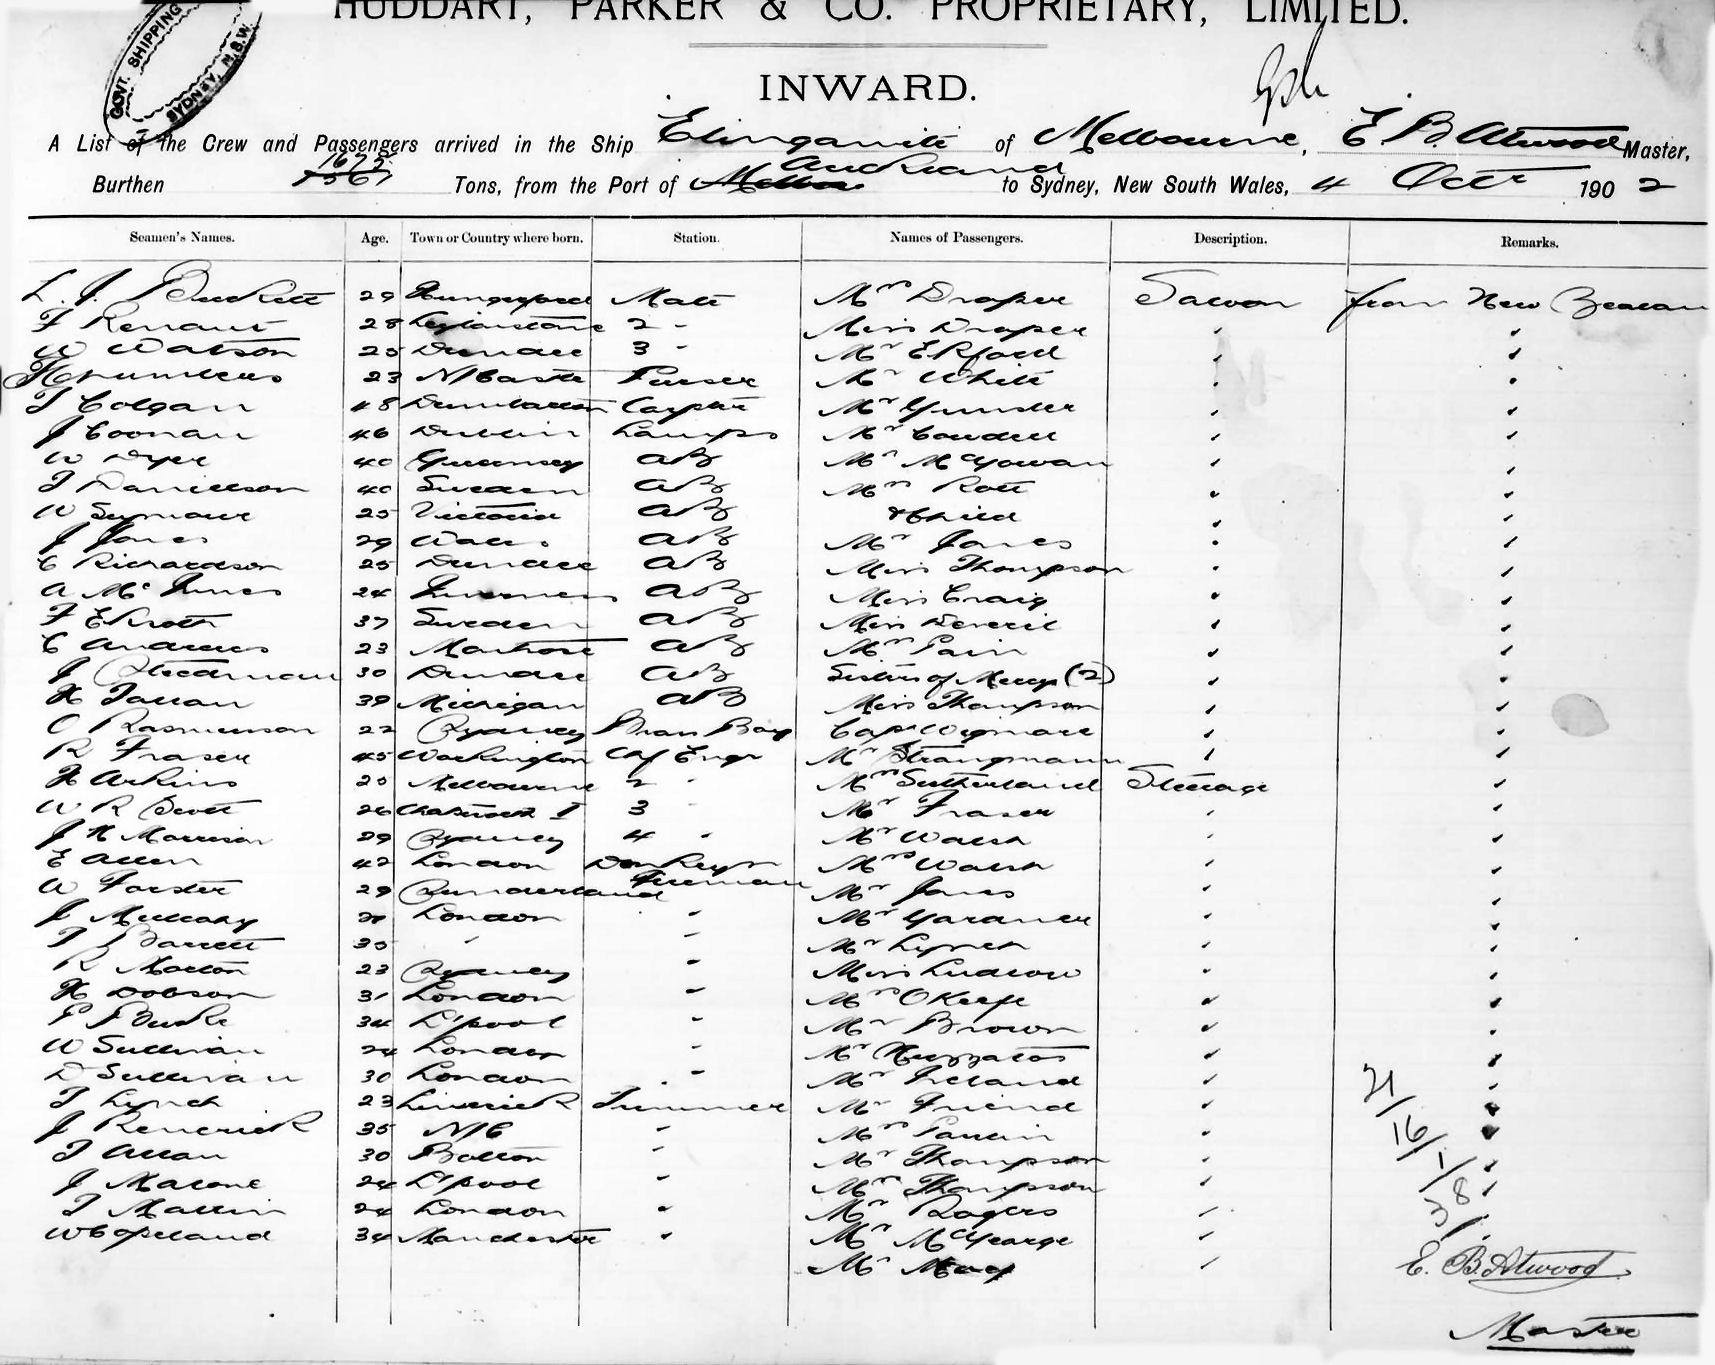 HUDDART, PARKER & CO. PROPRIETARY, LIMITED.
GOVT. SHIPPING
SYDNEY, N.S.W.
INWARD.
A List of the Crew and Passengers arrived in the Ship Elingamite of Melbourne, E. B. Atwood Master,
Burthen 1675 Tons, from the Port of Auckland to Sydney, New South Wales, 4 Octr 1902
Seamen's Names. Age. Town or Country where born. Station. Names of Passengers. Description. Remarks.
L. J. Burkitt 29 Hungerford Mate Mrs Draper Saloon from New Zealan
F Renaut 28 Leytonstone 2 " Miss Draper " "
W Watson 25 Dundee 3 " Mr E R Ford " "
23 N/Castle Purser Mr White " "
T Colgan 48 Dumbarton Carptr Mr Gunder " "
J Coonan 46 Dublin Lamps Mr Caudell " "
W Dyer 40 Guernsey AB Mr McGowan " "
T Danielson 40 Sweden AB Mrs Rott " "
W Seymour 25 Victoria AB & Child " "
J Jones 29 Wales AB Mr Jones " "
C Richardson 25 Dundee AB Miss Thompson " "
A McInnes 24 Inverness AB Miss Craig " "
F Ekroth 37 Sweden AB Miss Deveril " "
C Andrews 23 Montrose AB Mrs Pain " "
J Steedman 30 Dundee AB Sisters of Mercy (2) " "
H Tallan 39 Michigan AB Miss Thompson " "
O Rasmussen 22 Sydney Brass Boy Capt Wigmore " "
R Fraser 45 Workington Chf Engr Mr Strangmann " "
H Arkins 25 Melbourne 2 " Mrs Sutherland Steerage "
W R Scott 26 Chatham I 3 Mr Fraser " "
J H Morrison 29 Sydney 4 " Mr Walsh " "
E Allen 42 London Donkeyn Mrs Walsh " "
W Forster 29 Sunderland Fireman Mr Jones " "
J Mullahy London " Mr Gardner " "
T J Barrett 35 " " Mr Lynch " "
R Morton 23 Sydney " Miss Ludlow " "
H Dobson 31 London " Mrs O'Keefe " "
P J Burke 34 L'pool " Mr Brown " "
W Sullivan 24 London " Mr " "
D Sullivan 30 London " Mr Ireland " "
T Lynch 23 Limerick Trimmer Mr Friend " "
J Kendrick 35 N/C " Mrs Paulin " "
T Allan 30 Bolton " Mr Thompson " "
J Malone 24 L'pool " Mrs Thompson " "
T Mallin 24 London " Mr Rogers "
W Copeland 34 Manchester " Mrs McGeorge "
Mr May "
21/
16/
1/
38/
E. B. Atwood
Master